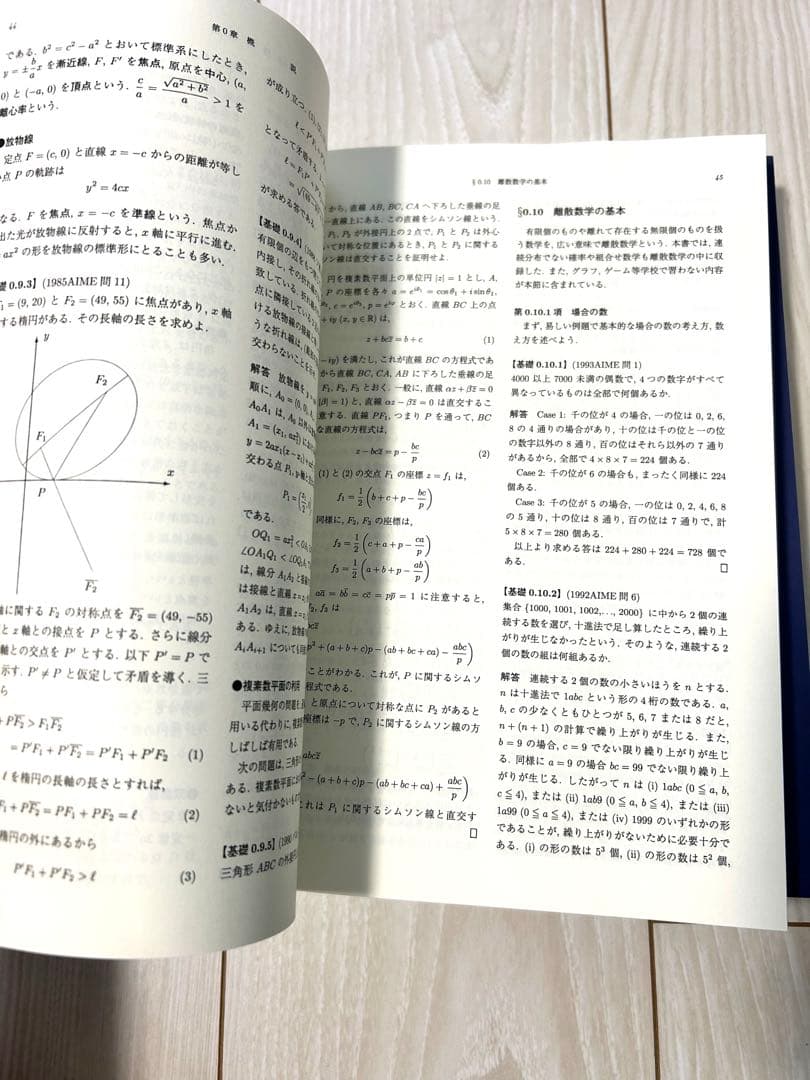 44
第0章 概
である. b² = c² − a² とおいて標準系にしたとき,
y = ±b/a x を漸近線, F, F′ を焦点, 原点を中心, (a,
0) と (−a, 0) を頂点という. c/a = √(a² + b²)/a > 1 を
離心率という.
●放物線
定点 F = (c, 0) と直線 x = −c からの距離が等し
点 P の軌跡は
y² = 4cx
なる. F を焦点, x = −c を準線という. 焦点か
出た光が放物線に反射すると, x 軸に平行に進む.
ax² の形を放物線の標準形にとることも多い.
礎 0.9.3】(1985AIME 問 11)
= (9, 20) と F₂ = (49, 55) に焦点があり, x 軸
する楕円がある. その長軸の長さを求めよ.
y
F₂
F₁
x
P
F̅₂
に関する F₂ の対称点を F̅₂ = (49, −55)
と x 軸との接点を P とする. さらに線分
軸との交点を P′ とする. 以下 P′ = P で
示す. P′ ≠ P と仮定して矛盾を導く. 三
ら
+ PF̅₂ > F₁F̅₂
= P′F₁ + P′F̅₂ = P′F₁ + P′F₂ (1)
ℓ を楕円の長軸の長さとすれば,
F₁ + PF̅₂ = PF₁ + PF₂ = ℓ (2)
楕円の外にあるから
P′F₁ + P′F₂ > ℓ (3)
説
が成り立つ.
となって矛盾する.
が求める答である.
【基礎 0.9.4】
有限個の辺をもつ
内接し, その折れ
致している. 折れ
点に隣接している
ける放物線の接線
うな折れ線は,
交わらないことを
解答 放物線を
順に, A₀ = (0, 0),
A₀A₁ は,
A₁ = (x₁, ax₁²)
y = 2ax₁(x − x₁) +
交わる点 P₁
P₁ = (x₁/2,
である.
OQ₁ = ax₁² <
∠OA₁Q₁ < ∠OQ₁
は, 線分 A₁A₂ と
は接線と直線
A₁A₂ は, 直線
ある. ゆえに,
AᵢAᵢ₊₁ について
●複素数平面の利用
平面幾何の問題を
用いる代わりに, 複素
しばしば有用である.
次の問題は, 三角
ある. 複素数平面
ないと気付かない
【基礎 0.9.5】
三角形 ABC の外接
§0.10 離散数学の基本
45
から, 直線 AB, BC, CA へ下ろした垂線の足
一直線上にある. この直線をシムソン線という.
P₁, P₂ が外接円上の 2 点で, P₁ と P₂ は外心
いて対称な位置にあるとき, P₁ と P₂ に関する
ソン線は直交することを証明せよ.
円を複素数平面上の単位円 |z| = 1 とし, A,
P の座標を各々 a = e^{iθ₁} = cos θ₁ + i sin θ₁,
, c = e^{iθ₃}, p = e^{iφ} とおく. 直線 BC 上の点
+ iy (x, y ∈ R) は,
z + bcz̅ = b + c (1)
− iy) を満たし, これが直線 BC の方程式であ
から直線 BC, CA, AB に下ろした垂線の足
F₁, F₂, F₃ とおく. 一般に, 直線 αz + βz̅ = 0
|β| = 1) と, 直線 αz − βz̅ = 0 は直交するこ
意する. 直線 PF₁, つまり P を通って, BC
な直線の方程式は,
z − bcz̅ = p − bc/p (2)
(1) と (2) の交点 F₁ の座標 z = f₁ は,
f₁ = 1/2 (b + c + p − bc/p)
同様に, F₂, F₃ の座標は,
f₂ = 1/2 (c + a + p − ca/p)
f₃ = 1/2 (a + b + p − ab/p)
aa̅ = bb̅ = cc̅ = pp̅ = 1 に注意すると,
f₂, f₃ は
bcz̅
p² + (a + b + c)p − (ab + bc + ca) − abc/p)
ことがわかる. これが, P に関するシムソ
程式である.
と原点について対称な点に P₂ があると
座標は −p で, P₂ に関するシムソン線の方
abcz̅
² − (a + b + c)p − (ab + bc + ca) + abc/p)
これは P₁ に関するシムソン線と直交す
□
§0.10 離散数学の基本
有限個のものや離れて存在する無限個のものを扱
う数学を, 広い意味で離散数学という. 本書では, 連
続分布でない確率や組合せ数学も離散数学の中に収
録した. また, グラフ, ゲーム等学校で習わない内容
が本節に含まれている.
第 0.10.1 項 場合の数
まず, 易しい例題で基本的な場合の数の考え方, 数
え方を述べよう.
【基礎 0.10.1】(1993AIME 問 1)
4000 以上 7000 未満の偶数で, 4 つの数字がすべて
異なっているものは全部で何個あるか.
解答 Case 1: 千の位が 4 の場合, 一の位は 0, 2, 6,
8 の 4 通りの場合があり, 十の位は千の位と一の位
の数字以外の 8 通り, 百の位はそれら以外の 7 通り
があるから, 全部で 4 × 8 × 7 = 224 個ある.
Case 2: 千の位が 6 の場合も, まったく同様に 224
個ある.
Case 3: 千の位が 5 の場合, 一の位は 0, 2, 4, 6, 8
の 5 通り, 十の位は 8 通り, 百の位は 7 通りで, 計
5 × 8 × 7 = 280 個ある.
以上より求める答は 224 + 280 + 224 = 728 個で
ある. □
【基礎 0.10.2】(1992AIME 問 6)
集合 {1000, 1001, 1002,..., 2000} に中から 2 個の連
続する数を選び, 十進法で足し算したところ, 繰り上
がりが生じなかったという. そのような, 連続する 2
個の数の組は何組あるか.
解答 連続する 2 個の数の小さいほうを n とする.
n は十進法で 1abc という形の 4 桁の数である. a,
b, c の少なくともひとつが 5, 6, 7 または 8 だと,
n + (n + 1) の計算で繰り上がりが生じる. また,
b = 9 の場合, c = 9 でない限り繰り上がりが生じ
る. 同様に a = 9 の場合 bc = 99 でない限り繰り上
がりが生じる. したがって n は (i) 1abc (0 ≦ a, b,
c ≦ 4), または (ii) 1ab9 (0 ≦ a, b ≦ 4), または (iii)
1a99 (0 ≦ a ≦ 4), または (iv) 1999 のいずれかの形
であることが, 繰り上がりがないために必要十分で
ある. (i) の形の数は 5³ 個, (ii) の形の数は 5² 個,